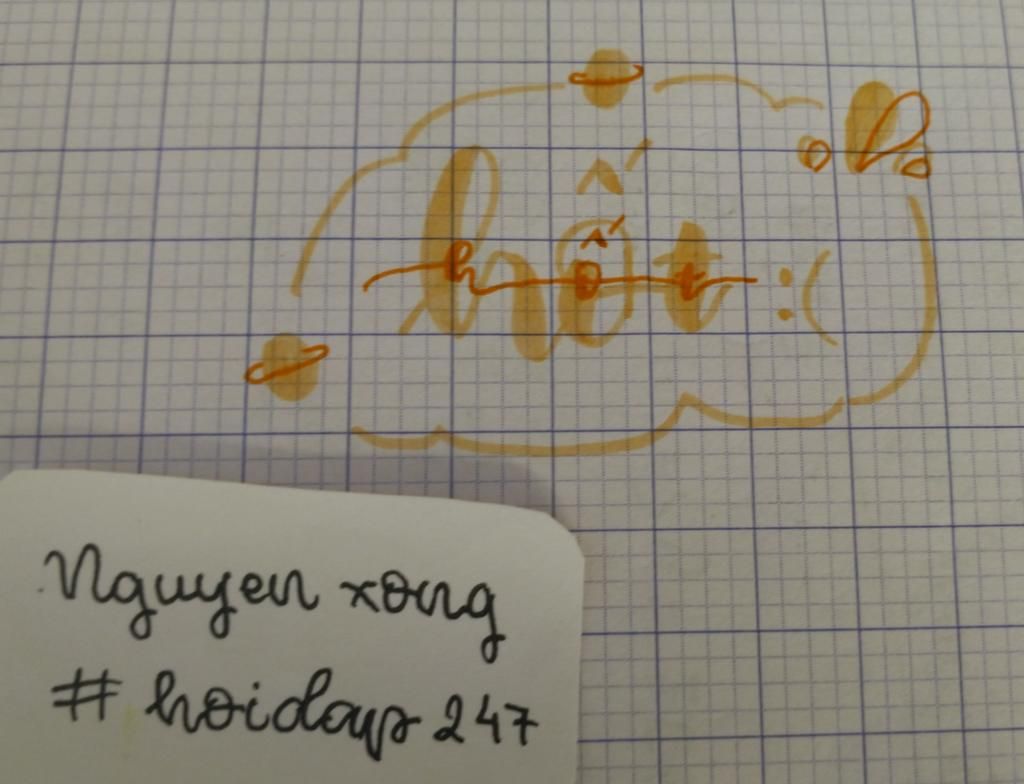 hốt :(
hốt
Nguyen xong
# hoidap 247